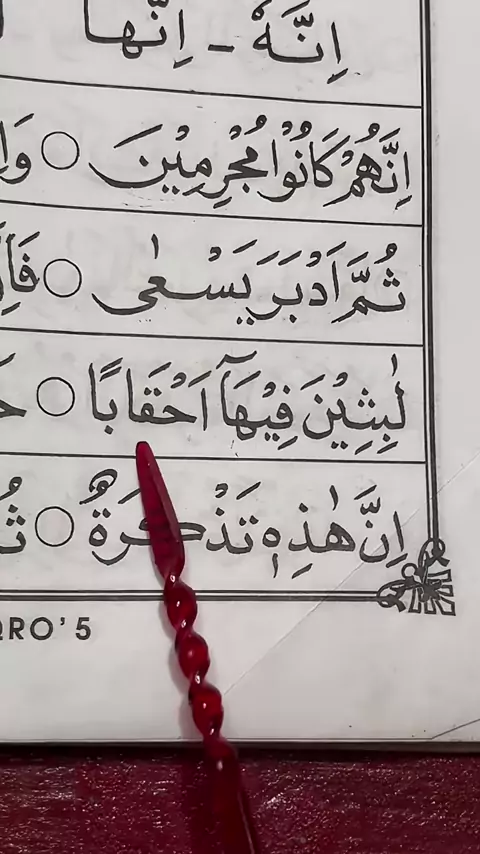 اِنَّهٗ - اِنَّهَا
اِنَّهُمْ كَانُوْا مُجْرِمِيْنَ ○ وَاِ
ثُمَّ اَدْبَرَ يَسْعٰى ○
لٰبِثِيْنَ فِيْهَآ اَحْقَابًا ○
اِنَّ هٰذِهٖ تَذْكِرَةٌ ○
QRO'5